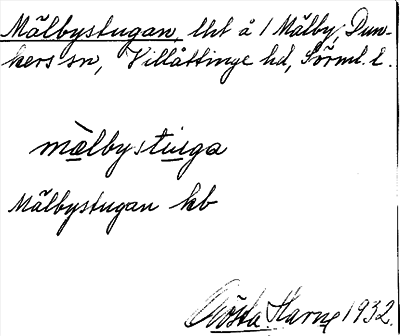 Mälbystugan, lht å 1 Mälby, Dun-
kers sn, Villåttinge hd, Sörml. l.
mälbystuga
Mälbystugan kb
Gösta Harne 1932.